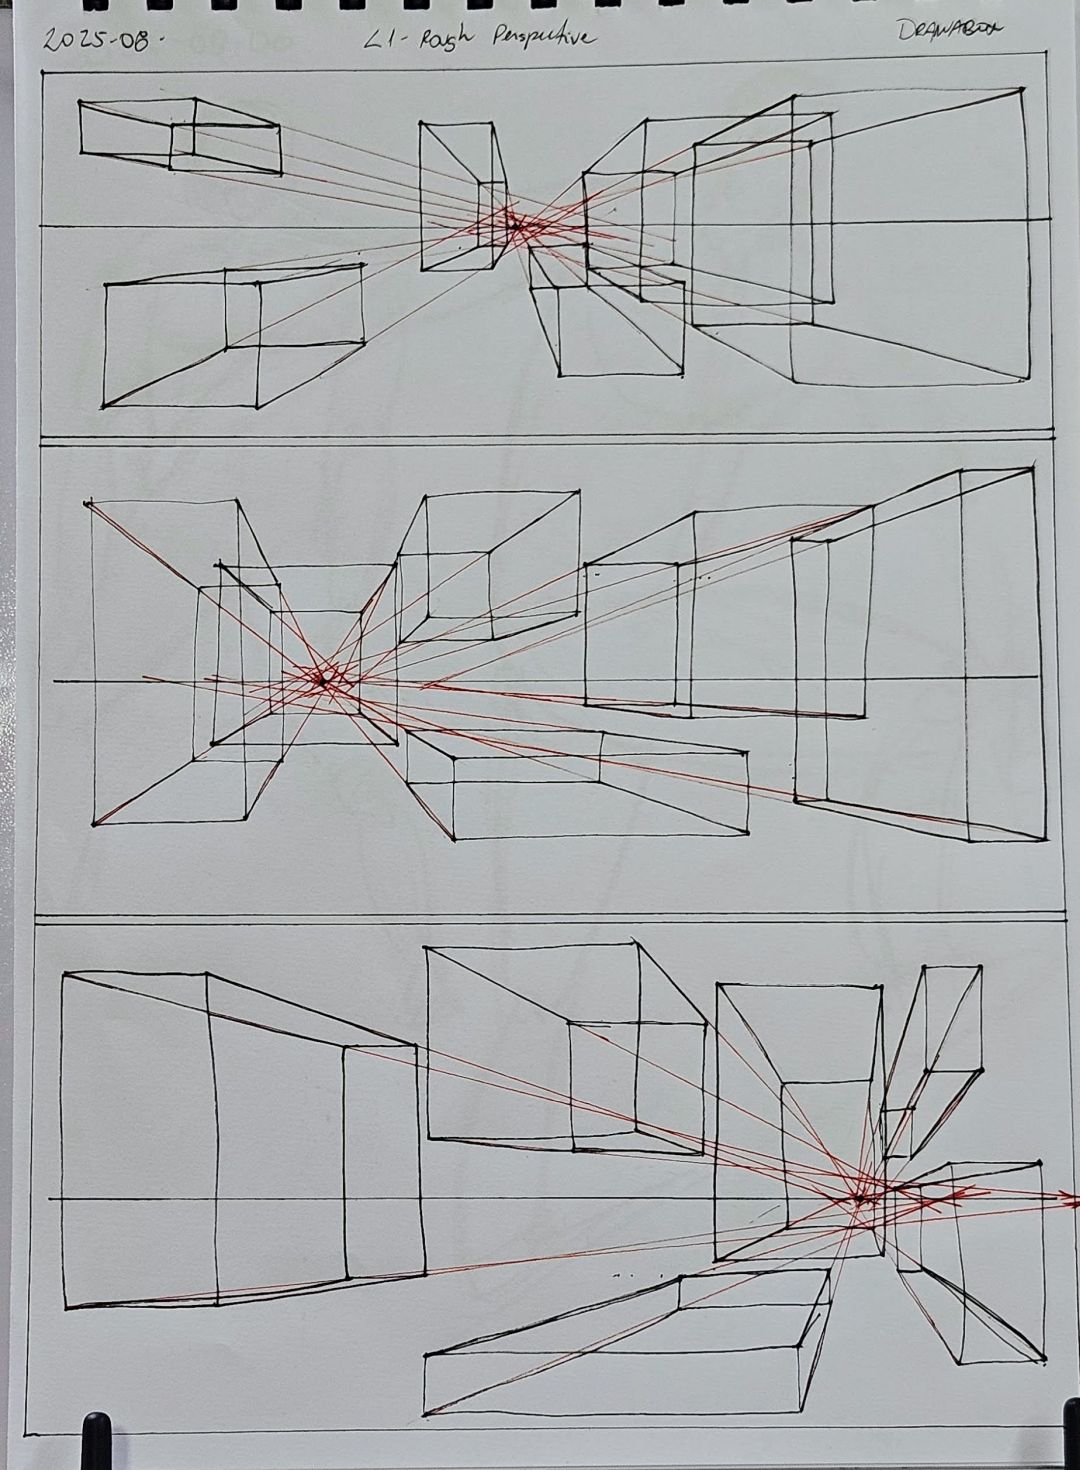 2025-08-
L1- Rough Perspective
DRAWABOX